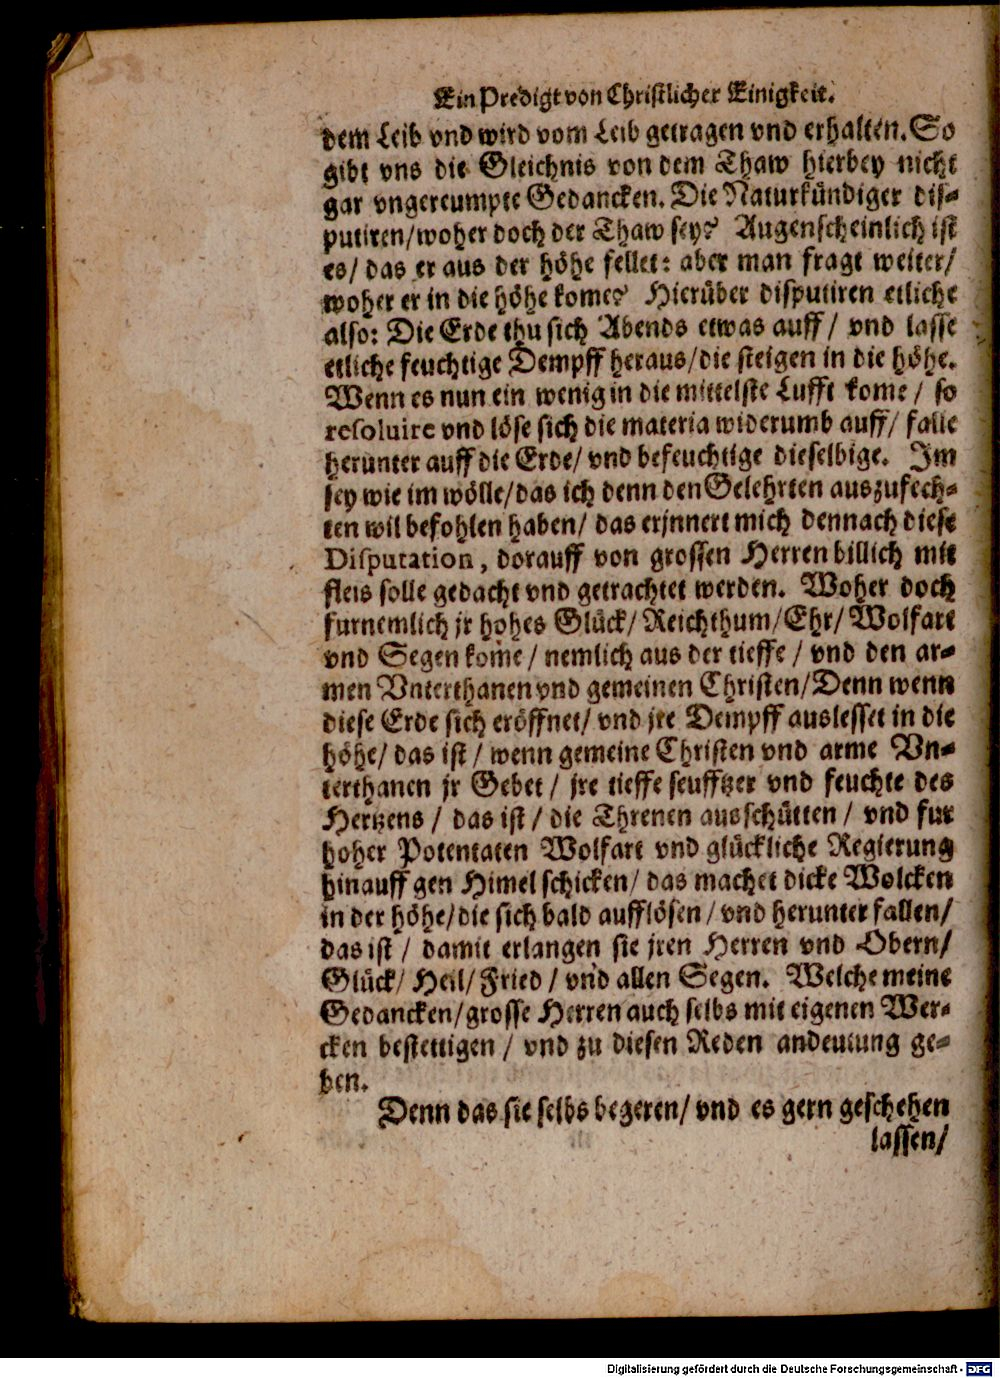 Ein Predigt von Christlicher Einigkeit.
dem Leib vnd wird vom Leib getragen vnd erhalten. So
gibt vns die Gleichnis von dem Thaw hierbey nicht
gar vngereumpte Gedancken. Die Naturkündiger dis-
putiren/woher doch der Thaw sey? Augenscheinlich ist
es/ das er aus der höhe fellet: aber man fragt weiter/
woher er in die höhe kome? Hierüber disputiren etliche
also: Die Erde thu sich Abends etwas auff/ vnd lasse
etliche feuchtige Dempff heraus/die steigen in die höhe.
Wenn es nun ein wenig in die mittelste Lufft kome/ so
resoluire vnd löse sich die materia widerumb auff/ falle
herunter auff die Erde/ vnd befeuchtige dieselbige. Im
sey wie im wölle/das ich denn den Gelehrten auszufech-
ten wil befohlen haben/ das erjnnert mich dennach diese
Disputation, dorauff von grossen Herren billich mit
fleis solle gedacht vnd getrachtet werden. Woher doch
furnemlich jr hohes Glück/ Reichthum/Ehr/ Wolfart
vnd Segen kome/ nemlich aus der tieffe/ vnd den ar-
men Vnterthanen vnd gemeinen Christen/Denn wenn
diese Erde sich eröffnet/ vnd jre Dempff auslesset in die
höhe/ das ist/ wenn gemeine Christen vnd arme Vn-
terthanen jr Gebet/ jre tieffe seufftzer vnd feuchte des
Hertzens/ das ist/ die Threnen ausschütten/ vnd fur
hoher Potentaten Wolfart vnd glückliche Regierung
hinauff gen Himel schicken/ das machet dicke Wolcken
in der höhe/die sich bald aufflösen/ vnd herunter fallen/
das ist/ damit erlangen sie jren Herren vnd Obern/
Glück/ Heil/ Fried/ vnd allen Segen. Welche meine
Gedancken/grosse Herren auch selbs mit eigenen Wer-
cken bestettigen/ vnd zu diesen Reden andeutung ge-
ben.
Denn das sie selbs begeren/ vnd es gern geschehen
lassen/
Digitalisierung gefördert durch die Deutsche Forschungsgemeinschaft - DFG